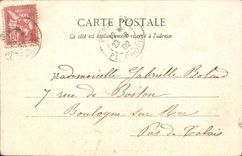 CARTE POSTALE
Ce côté est exclusivement réservé à l'adresse
Mademoiselle Gabrielle
7 rue de Boston
Boulogne sur Mer
Pas de Calais